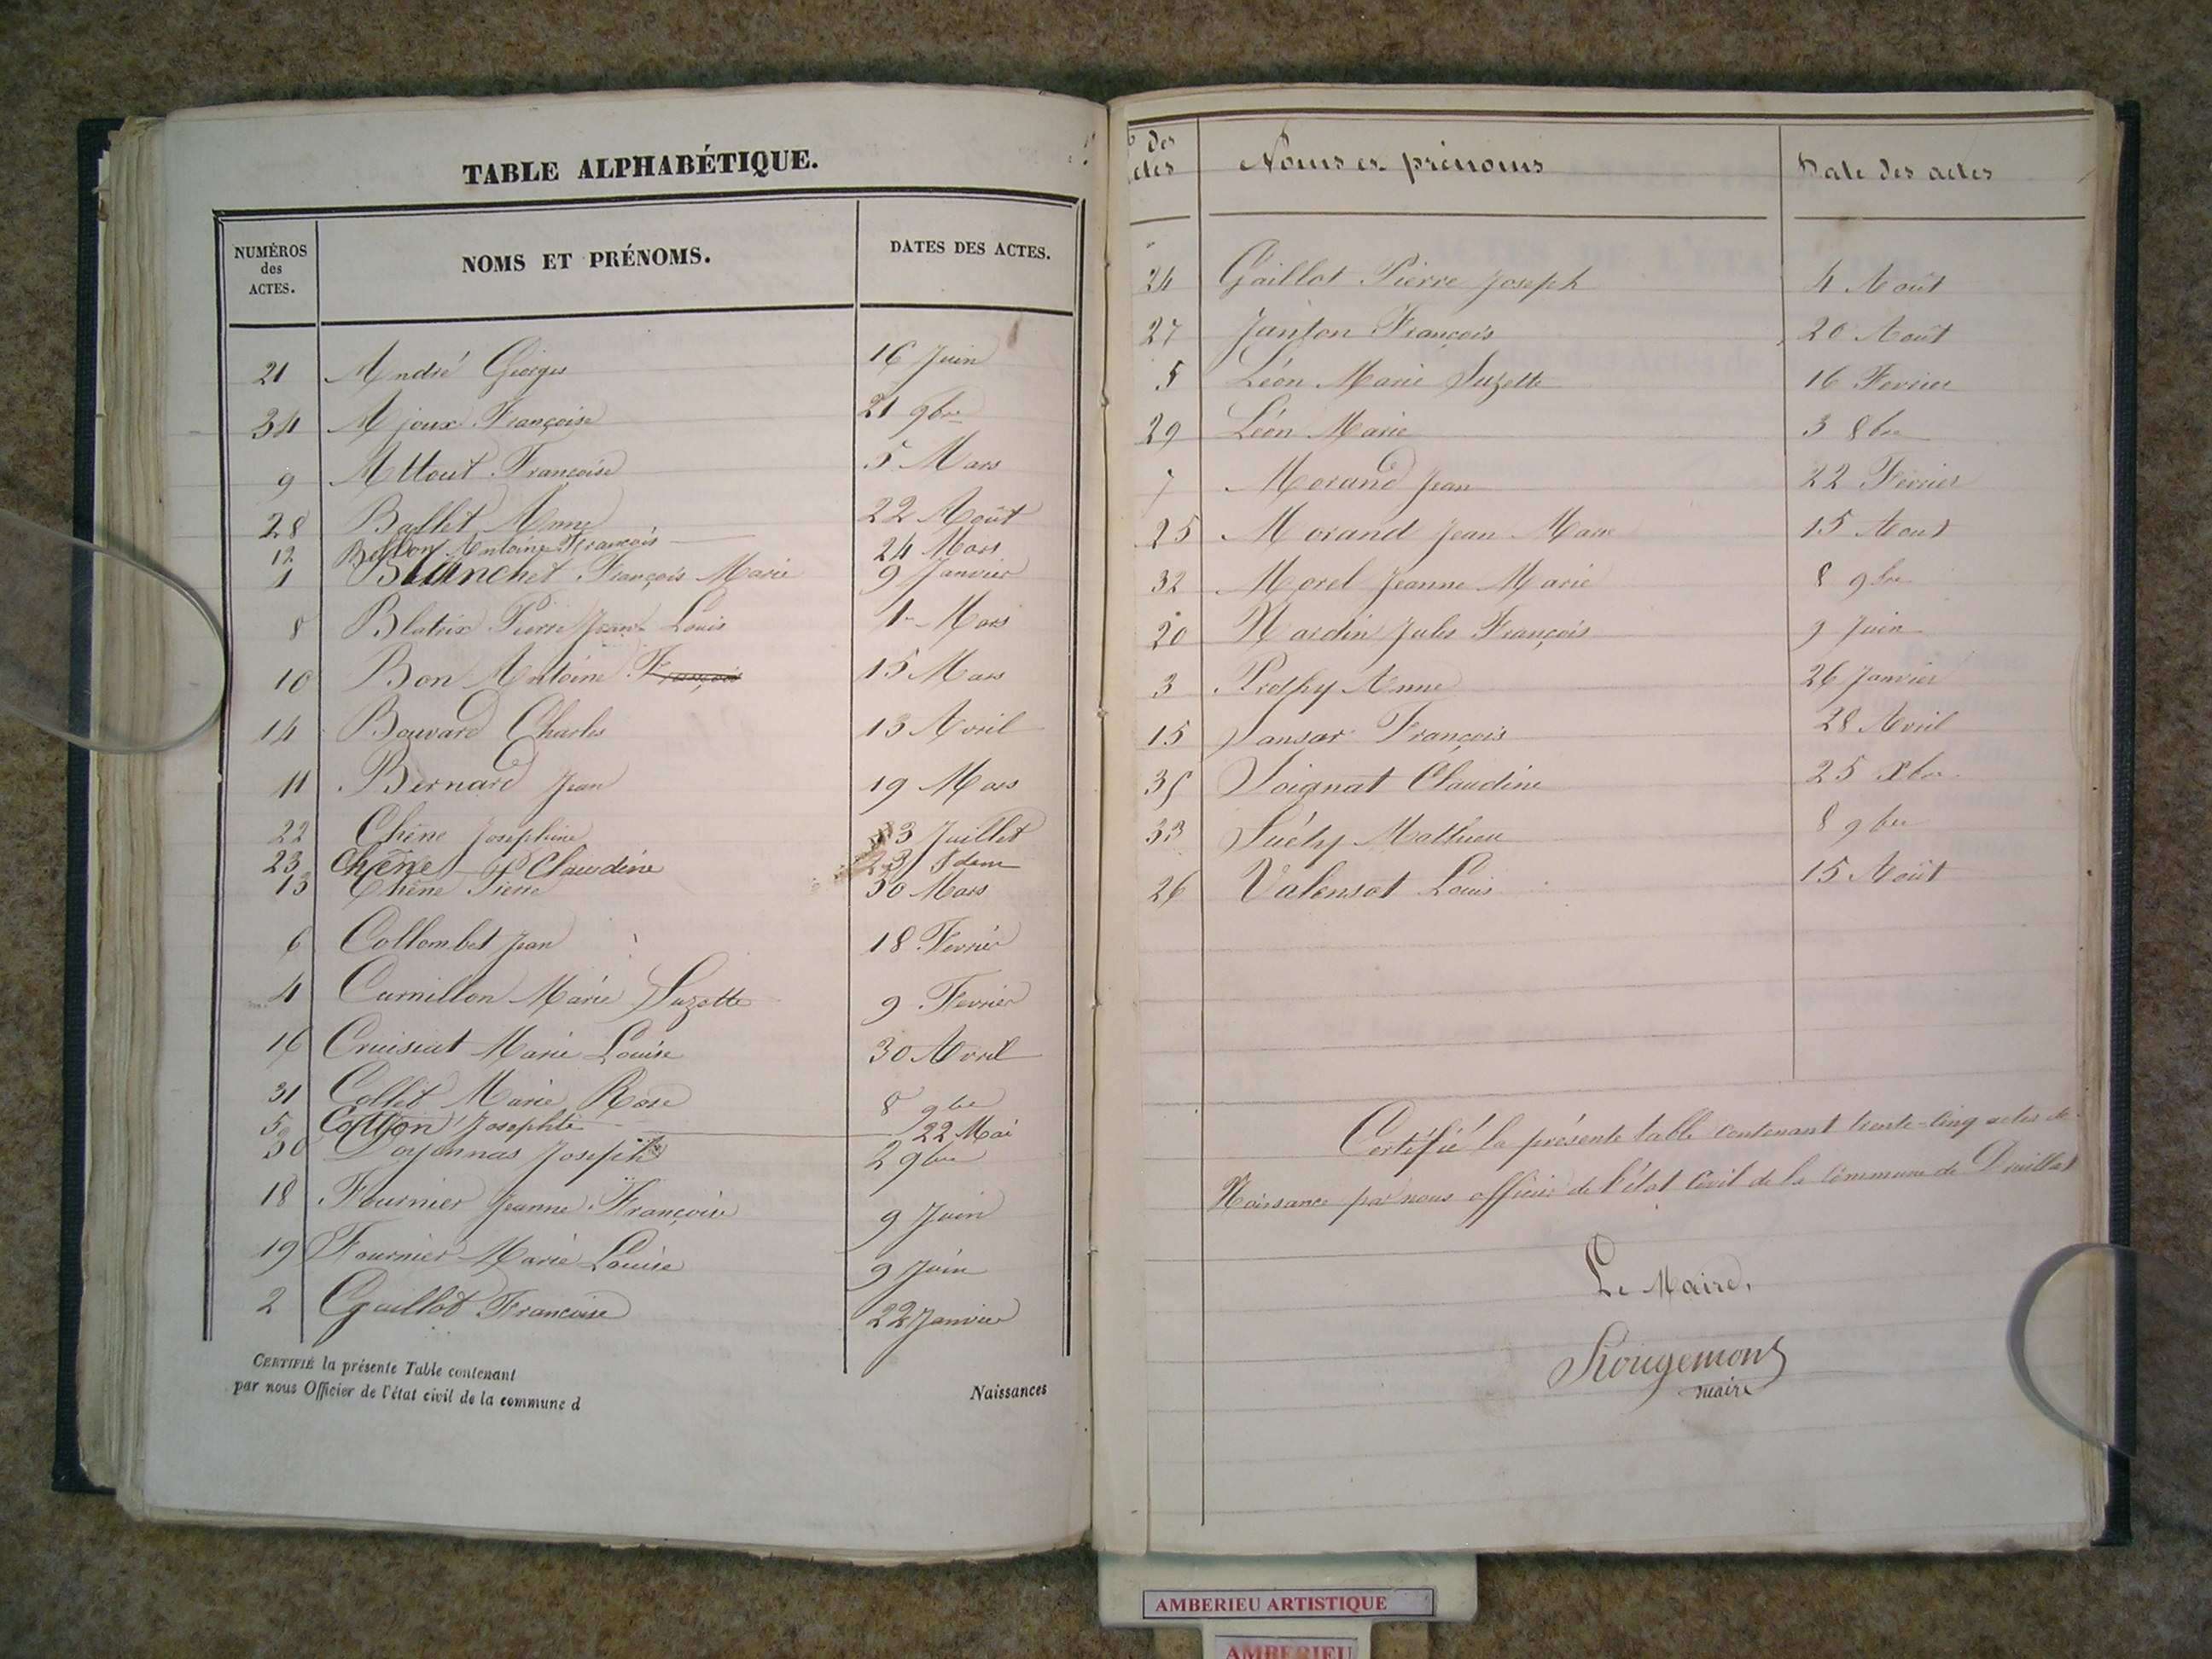 TABLE ALPHABÉTIQUE.
NUMÉROS des ACTES. NOMS ET PRÉNOMS. DATES DES ACTES.
21 André Giorges 16 Juin
34 Ajoux Françoise 21 9bre
9 Attout Françoise 5 Mars
28 Ballet Anne 22 Août
12 Antoine François 24 Mars
1 Blanchet François Marie 9 Janvier
8 Blatrix Pierre Jean Louis 1er Mars
10 Bon Antoine François 15 Mars
14 Bouvard Charles 13 Avril
11 Bernard Jean 19 Mars
22 Chêne Josephine 23 Juillet
23 Chêne Claudine 23 Idem
13 Chêne Pierre 30 Mars
6 Collombet Jean 18 Fevrier
4 Curnillon Marie Suzette 9 Fevrier
16 Cruisiat Marie Louise 30 Avril
31 Collet Marie Rose 8 9bre
Cotton Josephte 22 Mai
30 Doyonnas Josephte 2 9bre
18 Fournier Jeanne Françoise 9 Juin
19 Fournier Marie Louise 9 Juin
2 Guillot Francoise 22 Janvier
CERTIFIÉ la présente Table contenant Naissances
par nous Officier de l'état civil de la commune d
des
actes Noms et prénoms Date des actes
24 Gaillot Pierre Joseph 4 Août
27 Janton François 20 Août
5 Léon Marie Suzette 16 Fevrier
29 Léon Marie 3 8bre
7 Morand Jean 22 Fevrier
25 Morand Jean Marie 15 Aout
32 Morel Jeanne Marie 8 9bre
20 Nardin Jules François 9 Juin
3 Prothy Anne 26 Janvier
15 Sansar François 28 Avril
35 Soignat Claudine 25 Xbre
33 Suchy Mathieu 8 9bre
26 Valensot Louis 15 Août
Certifié la présente table contenant trente-cinq actes de
Naissance par nous officier de l'état Civil de la Commune de Druillat
Le Maire,
Rougemont
maire
AMBERIEU ARTISTIQUE
AMBERIEU